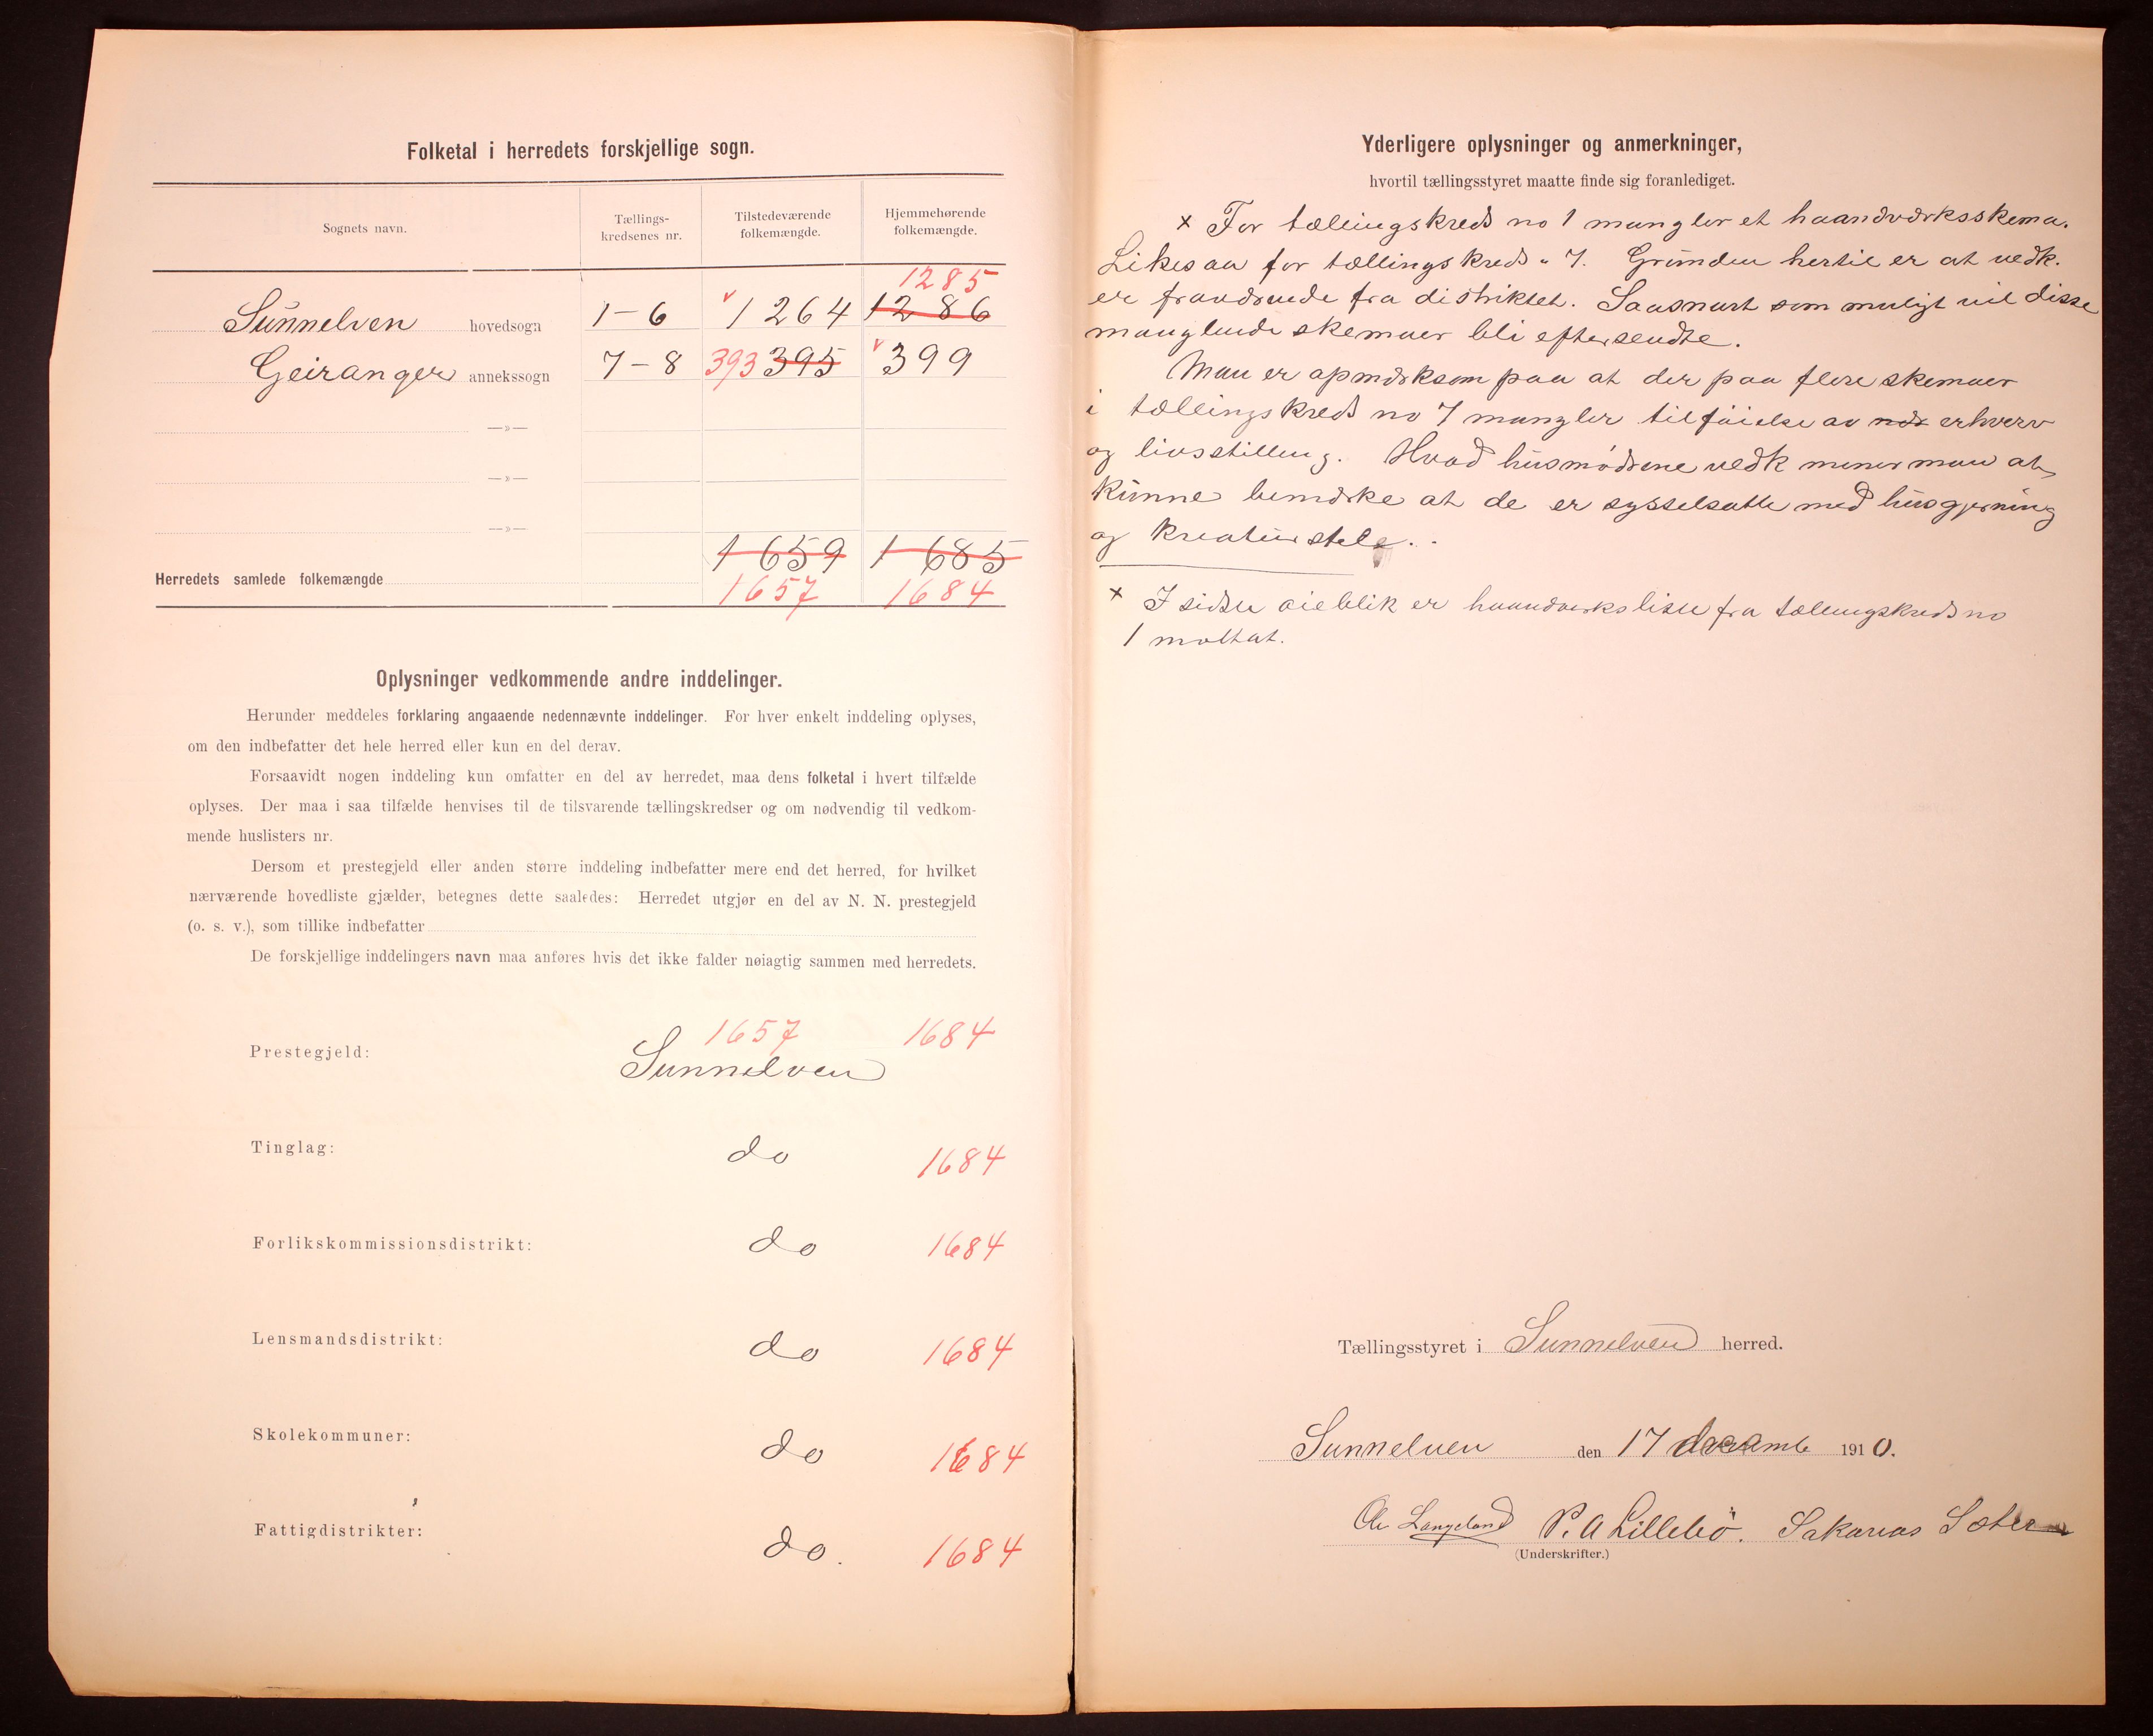 Folketal i herredets forskjellige sogn.
Sognets navn.
Tællings-
kredsenes nr.
Tilstedeværende
folkemængde.
Hjemmehørende
folkemængde.
1285
Sunnelven hovedsogn 1-6 v 1264 1286
Geiranger annekssogn 7-8 393 395 v 399
—»—
—»—
—»—
1659 1685
Herredets samlede folkemængde
1657 1684
Oplysninger vedkommende andre inddelinger.
Herunder meddeles forklaring angaaende nedennævnte inddelinger. For hver enkelt inddeling oplyses,
om den indbefatter det hele herred eller kun en del derav.
Forsaavidt nogen inddeling kun omfatter en del av herredet, maa dens folketal i hvert tilfælde
oplyses. Der maa i saa tilfælde henvises til de tilsvarende tællingskredser og om nødvendig til vedkom-
mende huslisters nr.
Dersom et prestegjeld eller anden større inddeling indbefatter mere end det herred, for hvilket
nærværende hovedliste gjælder, betegnes dette saaledes: Herredet utgjør en del av N. N. prestegjeld
(o. s. v.), som tillike indbefatter
De forskjellige inddelingers navn maa anføres hvis det ikke falder nøiagtig sammen med herredets.
1657 1684
Prestegjeld: Sunnelven
Tinglag: do 1684
Forlikskommissionsdistrikt: do 1684
Lensmandsdistrikt: do 1684
Skolekommuner: do 1684
Fattigdistrikter: do. 1684
Yderligere oplysninger og anmerkninger,
hvortil tællingsstyret maatte finde sig foranlediget.
x For tællingskreds no 1 mangler et haandværksskema.
Likesaa for tællingskreds " 7. Grunden hertil er at vedk.
er fraværende fra distriktet. Saasnart som muligt vil disse
manglende skemaer bli eftersendte.
Man er opmærksom paa at der paa flere skemaer
i tællingskreds no 7 mangler tilføielse av erhverv
og livsstilling. Hvad husmødrene vedk mener man at
kunne bemærke at de er sysselsatte med husgjerning
og kreaturstel.
x I sidste øieblik er haandverksliste fra tællingskreds no
1 mottat.
Tællingsstyret i Sunnelven herred.
Sunnelven den 17 decemb 1910.
Ole Langeland P. A Lillebø. Sakarias Sæter
(Underskrifter.)